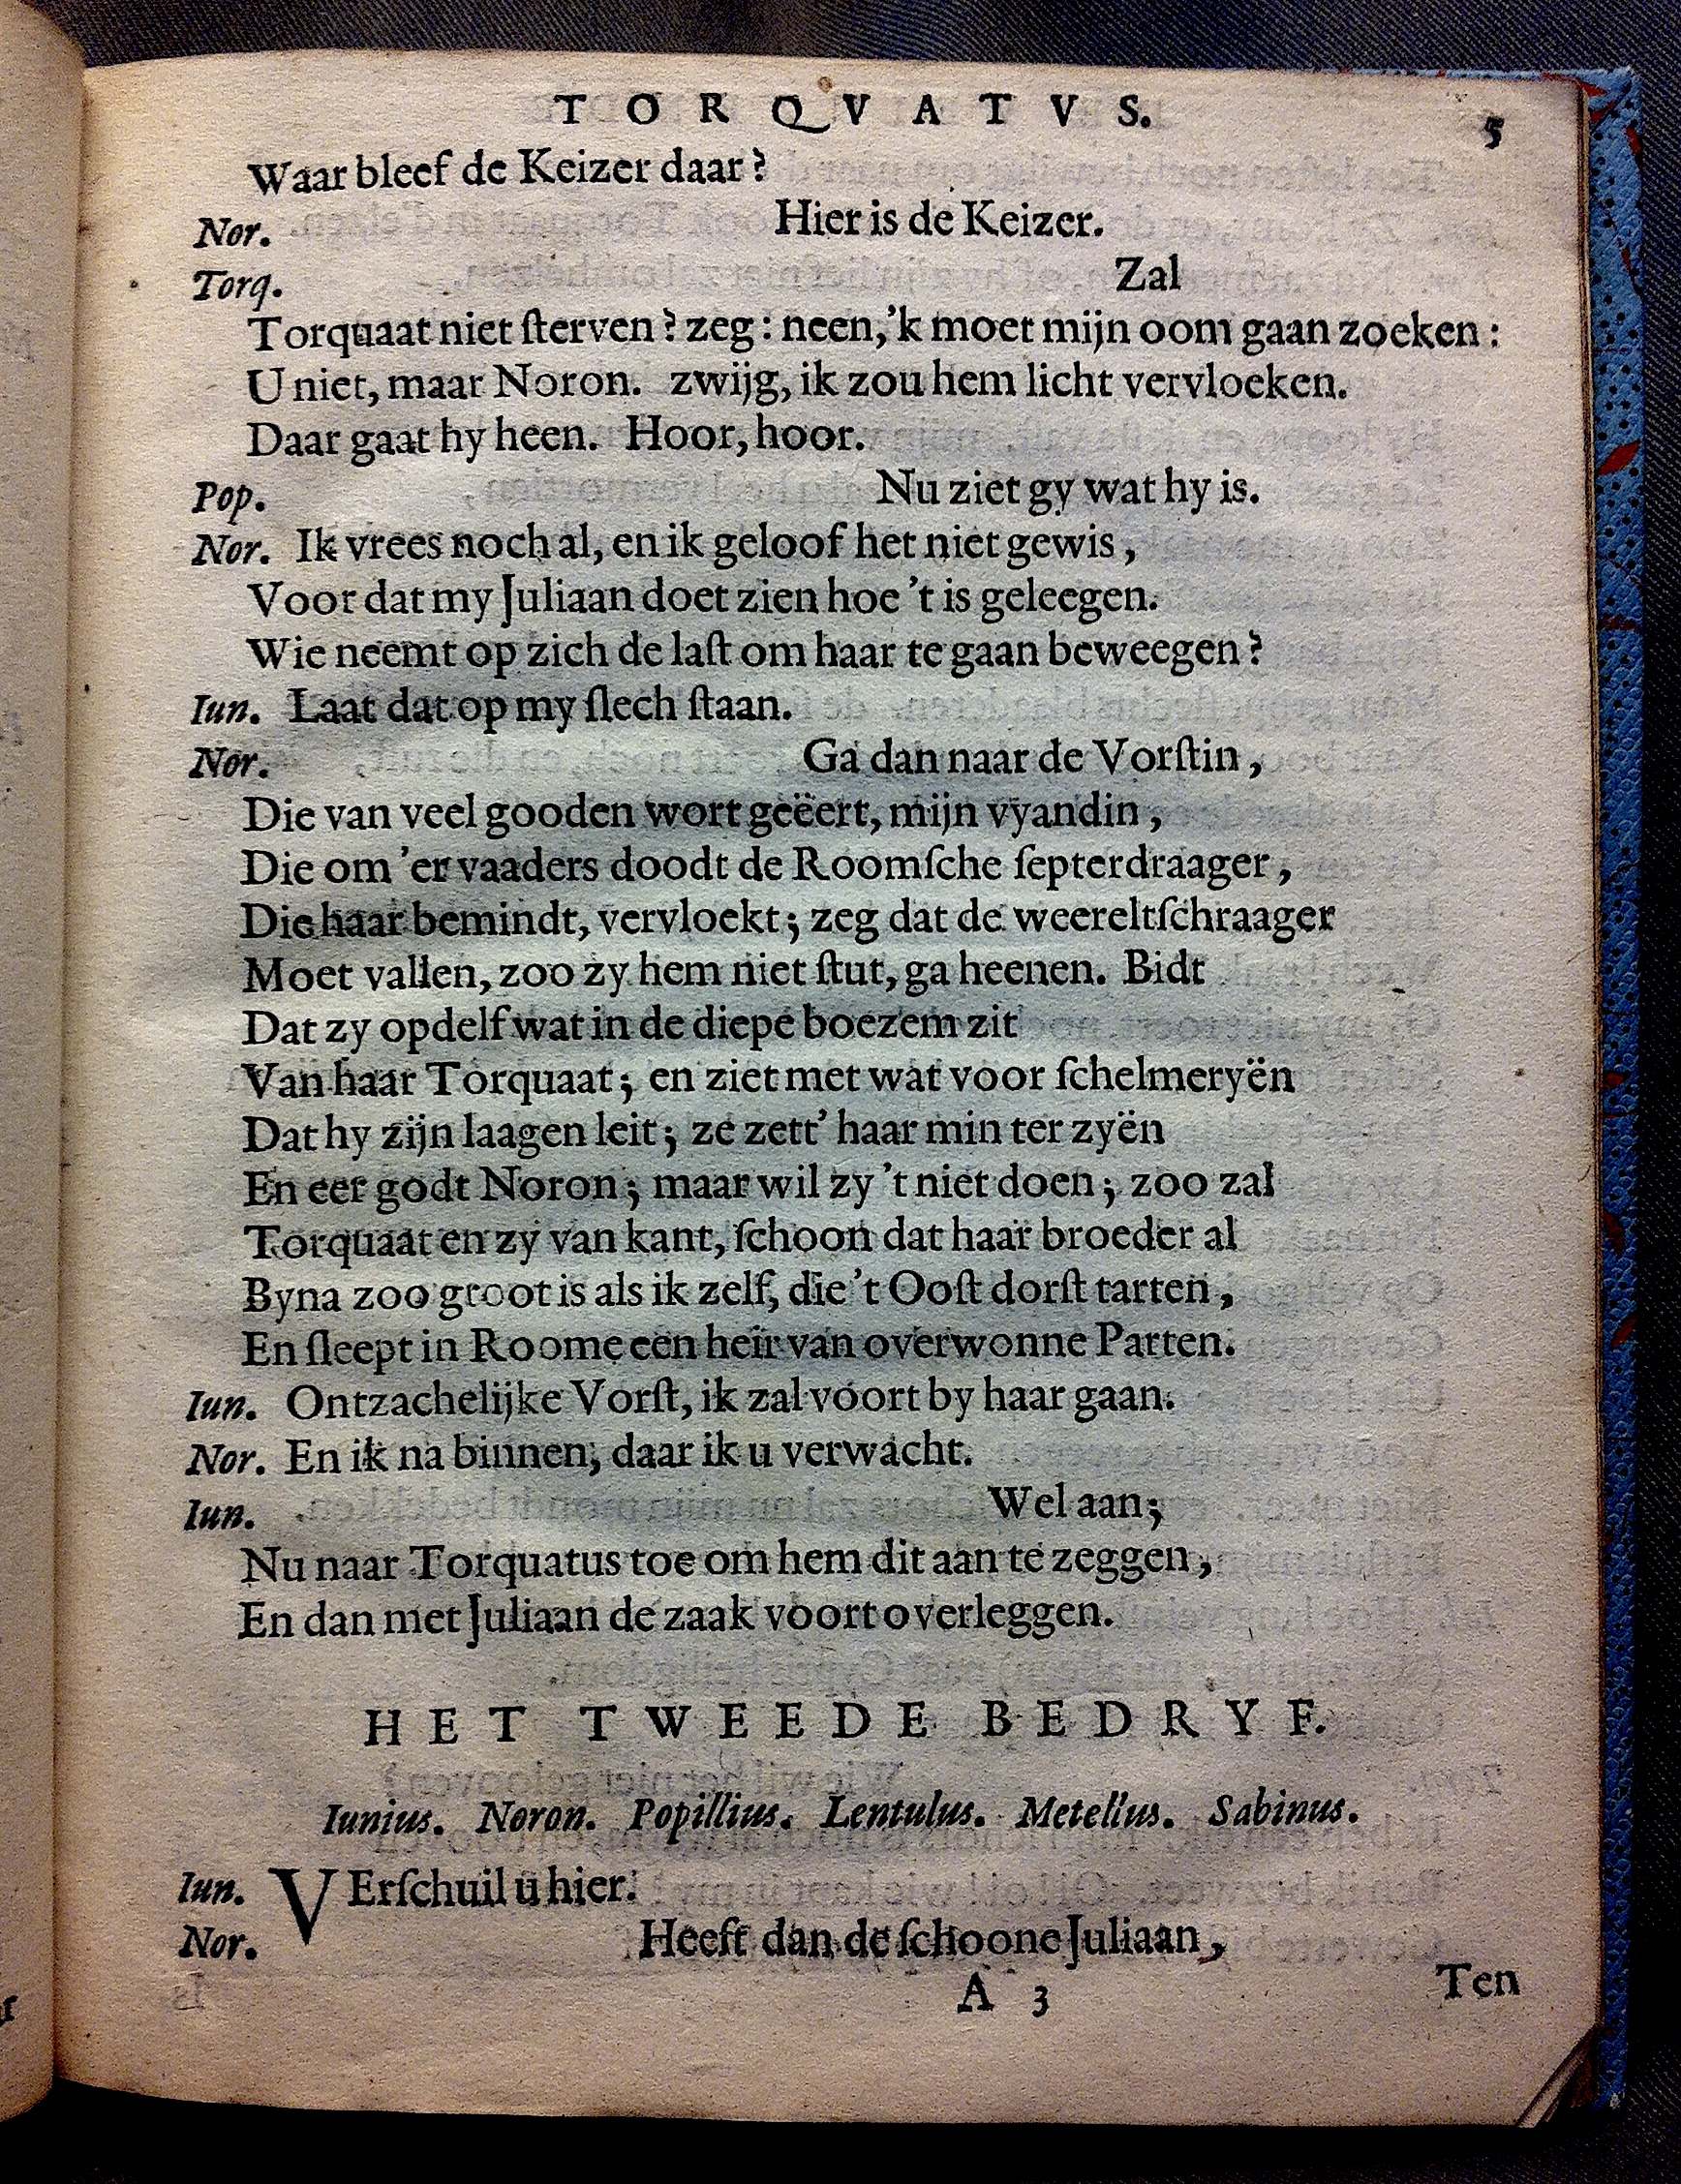 TORQVATVS. 5
Waar bleef de Keizer daar?
Nor. Hier is de Keizer.
Torq. Zal
Torquaat niet ſterven? zeg: neen, 'k moet mijn oom gaan zoeken:
U niet, maar Noron. zwijg, ik zou hem licht vervloeken.
Daar gaat hy heen. Hoor, hoor.
Pop. Nu ziet gy wat hy is.
Nor. Ik vrees noch al, en ik geloof het niet gewis,
Voor dat my Juliaan doet zien hoe 't is geleegen.
Wie neemt op zich de laſt om haar te gaan beweegen?
Iun. Laat dat op my ſlech ſtaan.
Nor. Ga dan naar de Vorſtin,
Die van veel gooden wort geëert, mijn vyandin,
Die om 'er vaaders doodt de Roomſche ſepterdraager,
Die haar bemindt, vervloekt; zeg dat de weereltſchraager
Moet vallen, zoo zy hem niet ſtut, ga heenen. Bidt
Dat zy opdelf wat in de diepe boezem zit
Van haar Torquaat; en ziet met wat voor ſchelmeryën
Dat hy zijn laagen leit; ze zett' haar min ter zyën
En eer godt Noron; maar wil zy 't niet doen; zoo zal
Torquaat en zy van kant, ſchoon dat haar broeder al
Byna zoo groot is als ik zelf, die 't Ooſt dorſt tarten,
En ſleept in Roome een heir van overwonne Parten.
Iun. Ontzachelijke Vorſt, ik zal voort by haar gaan.
Nor. En ik na binnen, daar ik u verwacht.
Iun. Wel aan;
Nu naar Torquatus toe om hem dit aan te zeggen,
En dan met Juliaan de zaak voort overleggen.
HET TWEEDE BEDRYF.
Iunius. Noron. Popillius. Lentulus. Metellus. Sabinus.
Iun. VErſchuil u hier.
Nor. Heeft dan de ſchoone Juliaan,
A 3 Ten